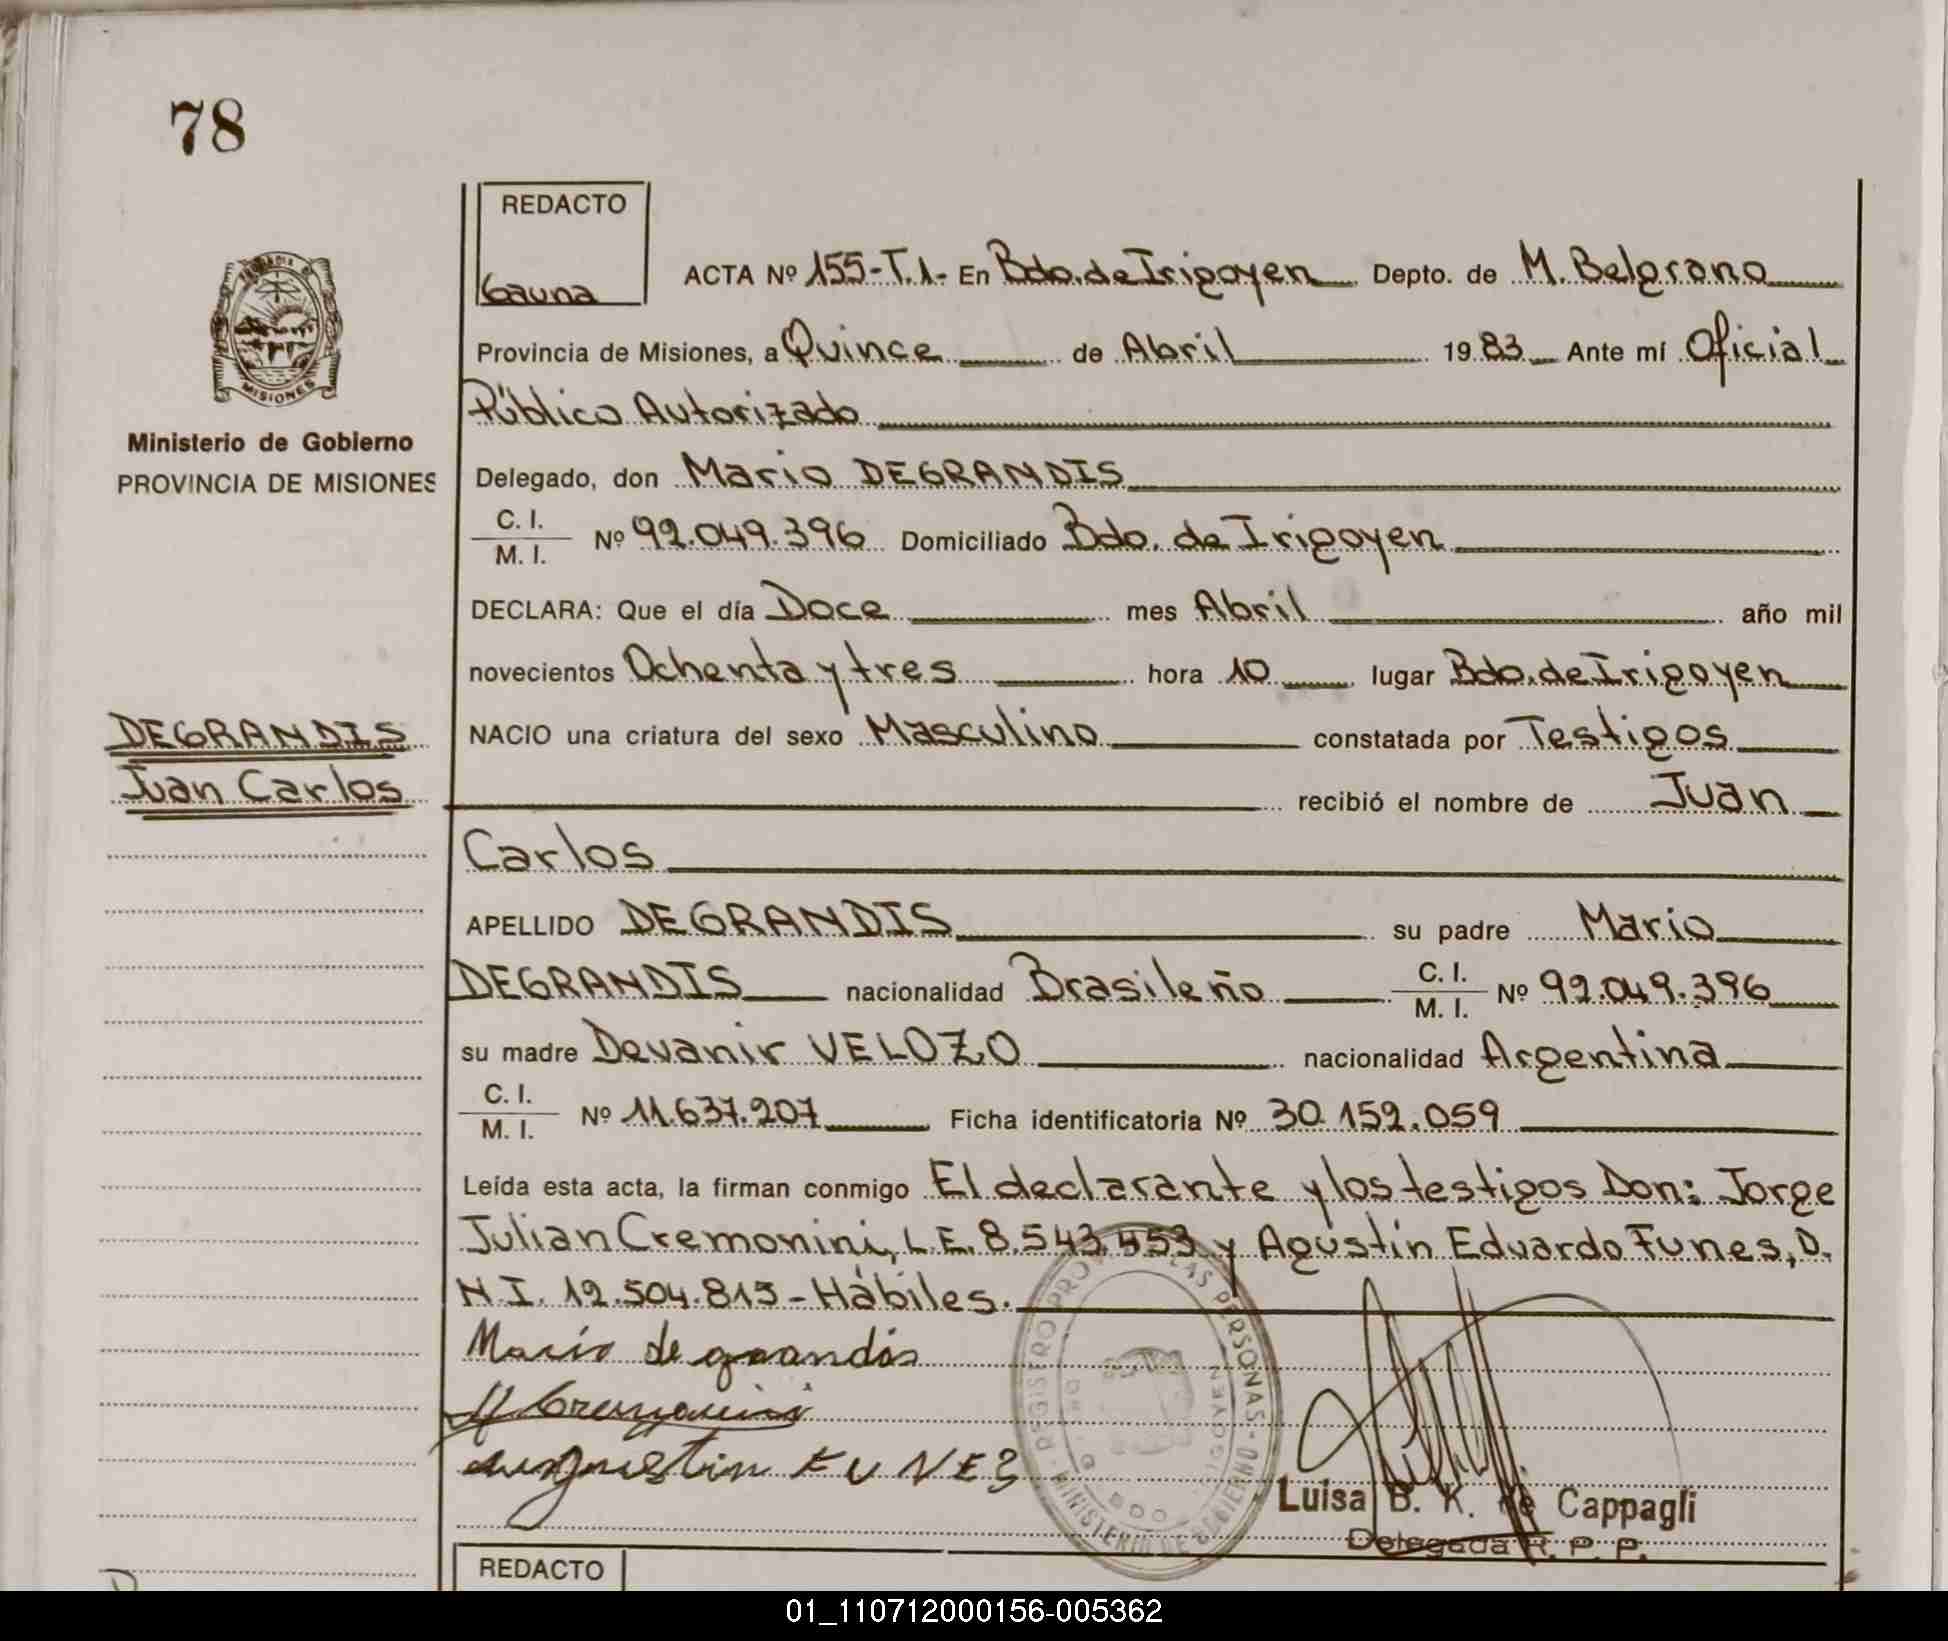 78
REDACTO
Gauna
ACTA Nº 155-T.1- En Bdo. de Irigoyen Depto. de M. Belgrano
Provincia de Misiones, a Quince de Abril 19 83 Ante mí Oficial
Público Autorizado
MISIONES
Ministerio de Gobierno
PROVINCIA DE MISIONES
Delegado, don Mario DEGRANDIS
C. I.
M. I. Nº 92.049.396 Domiciliado Bdo. de Irigoyen
DECLARA: Que el día Doce mes Abril año mil
novecientos Ochenta y tres hora 10 lugar Bdo. de Irigoyen
DEGRANDIS
Juan Carlos
NACIO una criatura del sexo Masculino constatada por Testigos
recibió el nombre de Juan
Carlos
APELLIDO DEGRANDIS su padre Mario
DEGRANDIS nacionalidad Brasileño C. I. M. I. Nº 92.049.396
su madre Devanir VELOZO nacionalidad Argentina
C. I.
M. I. Nº 11.637.207 Ficha identificatoria Nº 30.152.059
Leída esta acta, la firman conmigo El declarante y los testigos Don: Jorge
Julian Cremonini, L.E. 8.543.453 y Agustín Eduardo Funes, D.
N.I. 12.504.813 - Hábiles.
Mario de grandis
Cremonini
augustin FUNES
REGISTRO PROV. DE LAS PERSONAS - MINISTERIO DE GOBIERNO
BDO. IRIGOYEN
Luisa B. K. de Cappagli
Delegada R. P. P.
REDACTO
01_110712000156-005362